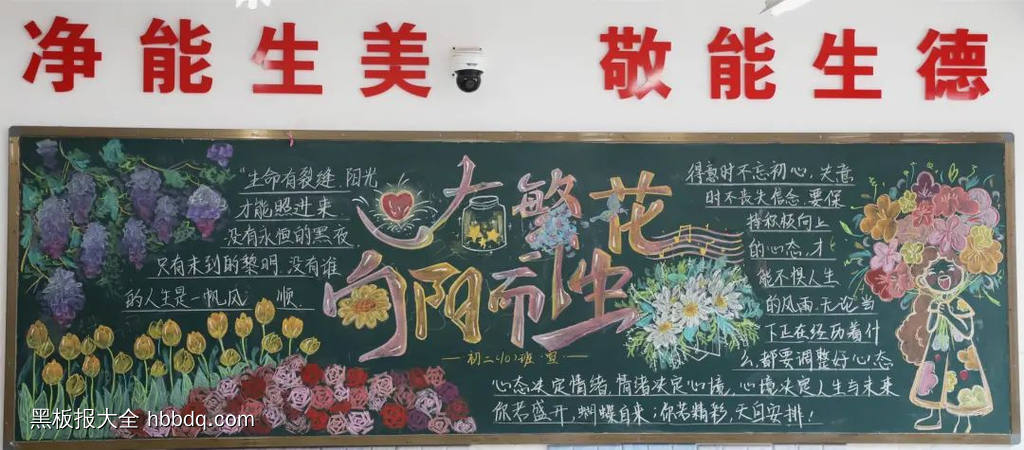 净能生美 敬能生德
"生命有裂缝,阳光
才能照进来
没有永恒的黑夜
只有未到的黎明,没有谁
的人生是一帆风 顺.
心有繁花
向阳而生
得意时不忘初心,失意
时不丧失信念,要保
持积极向上
的心态,才
能不惧人生
的风雨.无论当
下正在经历着什
么,都要调整好心态
心态决定情绪,情绪决定心境,心境决定人生与未来
你若盛开,蝴蝶自来;你若精彩,天自安排!
黑板报大全 hbbdq.com